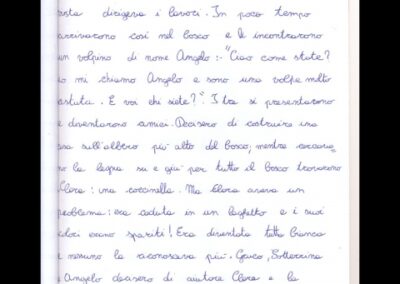 asta dirigeva i lavori. In poco tempo
arrivarono così nel bosco e lì incontrarono
un volpino di nome Angelo: - "Ciao come state?
io mi chiamo Angelo e sono una volpe molto
astuta. E voi chi siete?". I tre si presentarono
e diventarono amici. Decisero di costruire una
sa sull'albero più alto del bosco; mentre cercava-
no la legna su e giù per tutto il bosco trovarono
Clara: una coccinella. Ma Clara aveva un
problema: era caduta in un laghetto e i suoi
erano spariti! Era diventata tutta bianca
e nessuno la riconosceva più. Greco,
e Angelo decisero di aiutare Clara e la